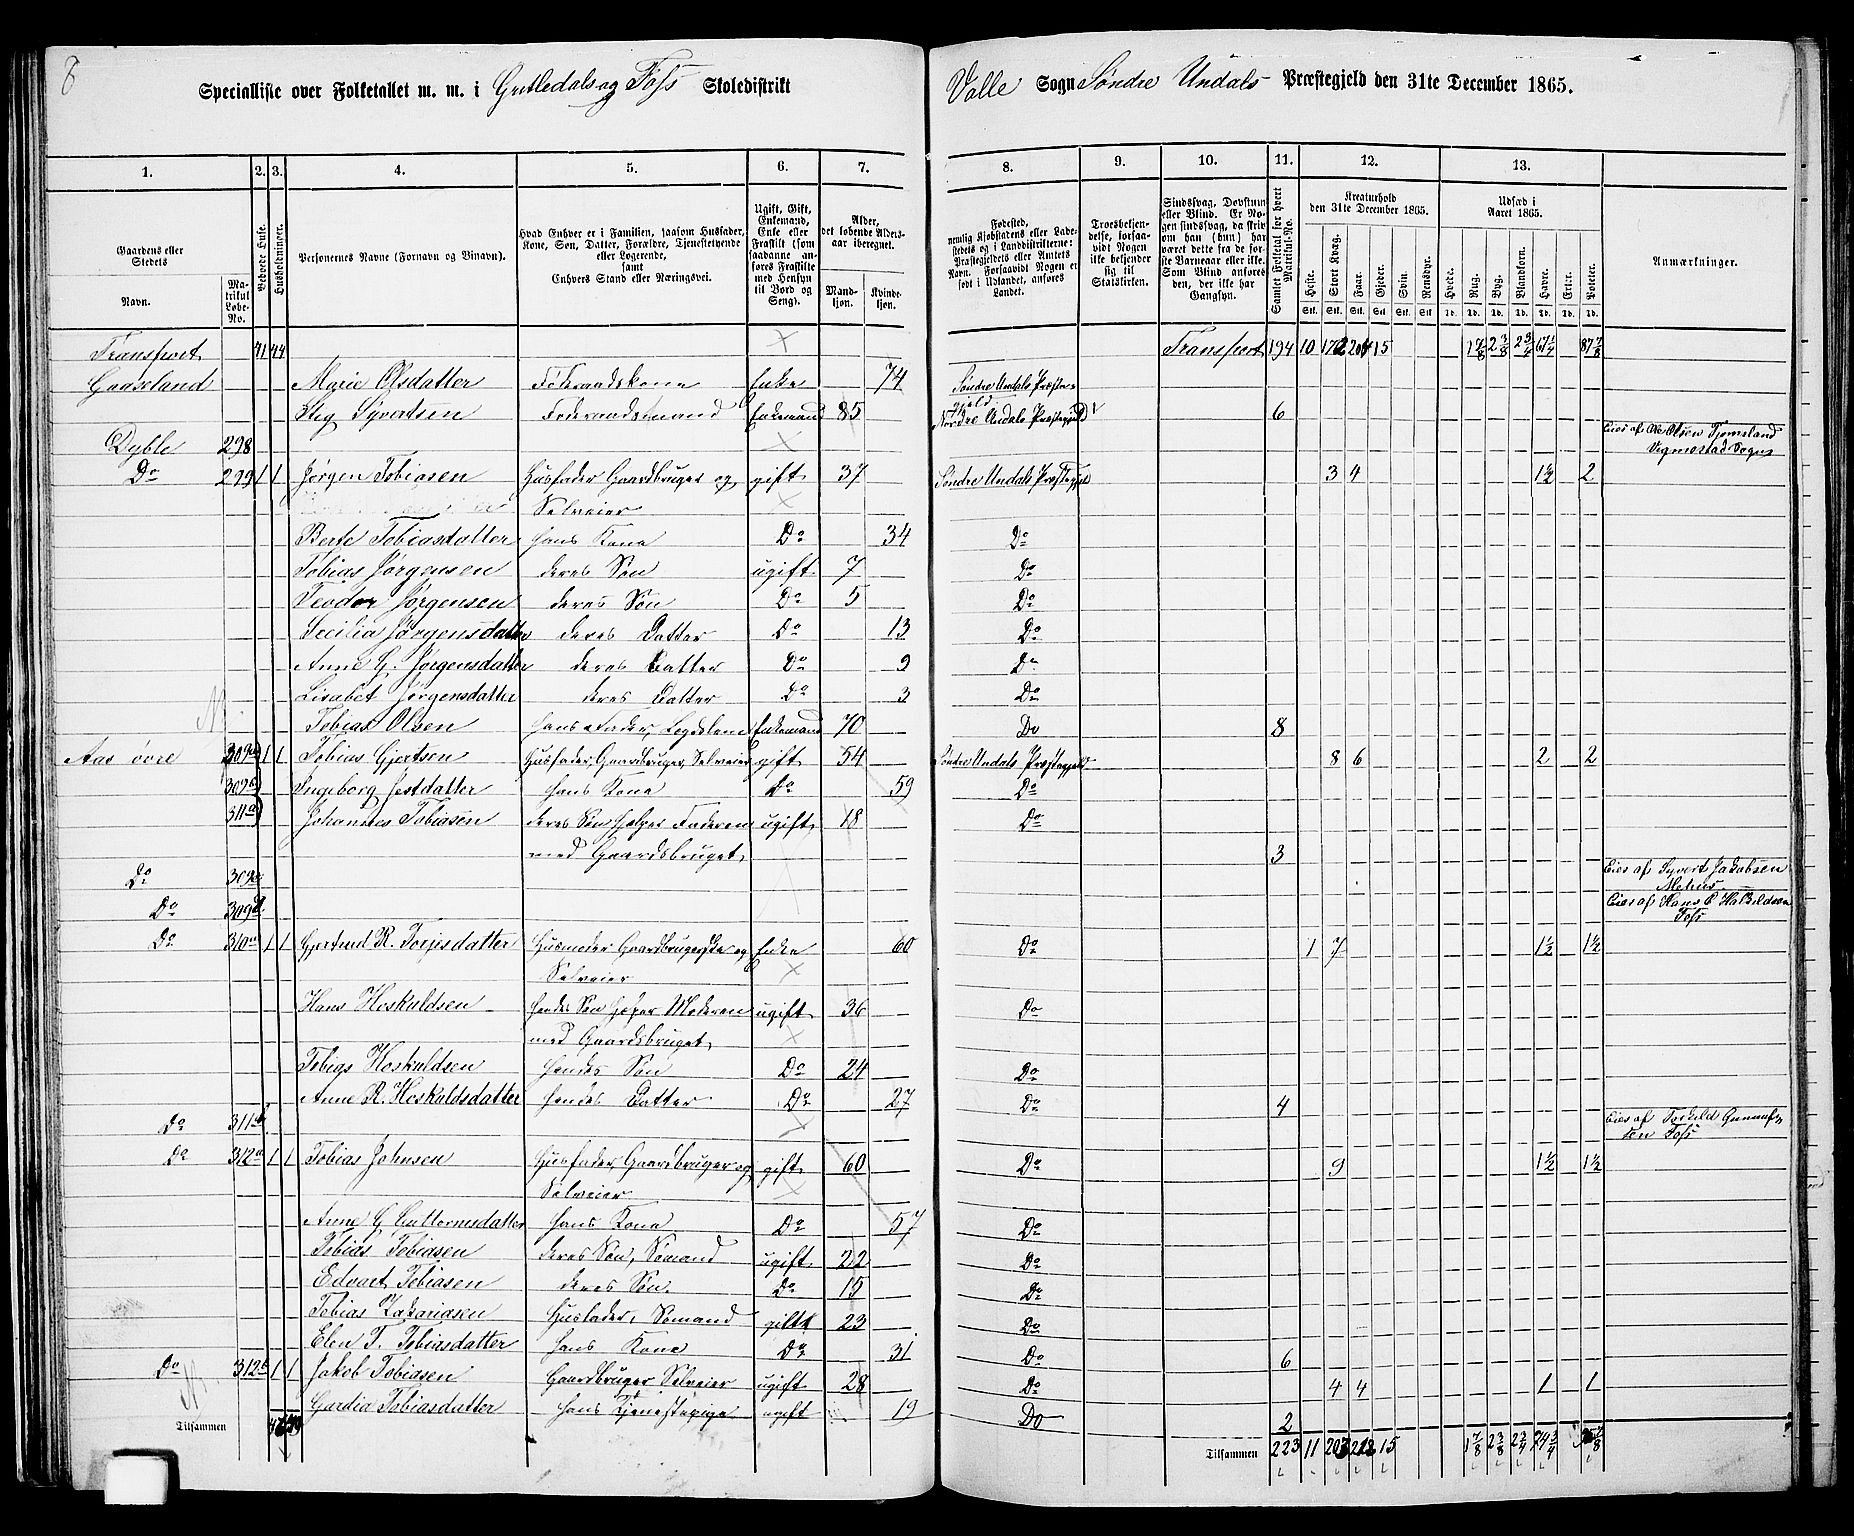 8
Specialliste over Folketallet m. m. i Gutledals og Foss Skoledistrikt Valle Sogn Søndre Undals Præstegjeld den 31te December 1865.
1. 2. 3. 4. 5. 6. 7. 8. 9. 10. 11. 12. 13.
Gaardens eller Stedets
Navn. Matrikul Løbe-No.
Beboede Huse.
Husholdninger.
Personernes Navne (Fornavn og Tilnavn).
Hvad Enhver er i Familien, saasom Husfader, Kone, Søn, Datter, Forældre, Tjenestetyende eller Logerende, samt Enhvers Stand eller Næringsvei.
Ugift, Gift, Enkemand, Enke eller Fraskilt (som saadanne anføres Fraskilte med Hensyn til Bord og Seng).
Alder, det løbende Aldersaar iberegnet.
Mandkjøn. Kvindekjøn.
Fødested, nemlig Kjøbstadens eller Ladestedets og i Landdistrikterne: Præstegjeldets eller Amtets Navn. Forsaavidt Nogen er født i Udlandet, anføres Landet.
Troesbekjendelse, forsaavidt Nogen ikke bekjender sig til Statskirken.
Sindssvag, Døvstum eller Blind. Er Nogen sindssvag, da skriv om han (hun) har været dette fra de første Barneaar eller ikke. Som Blind anføres den, der ikke har Gangsyn.
Samlet Folketal for hvert Matrikul-No.
Kreaturhold den 31te December 1865.
Heste. Stort Kvæg. Faar. Gjeder. Svin. Rensdyr.
Udsæd i Aaret 1865.
Hvede. Rug. Byg. Blandkorn. Havre. Erter. Poteter.
Anmærkninger.
Transport 41 44 Transport 194 10 15 1 7/8 2 3/8 2 3/4
Gaaseland Marie Olsdatter Føderaadskone Enke 74 Søndre Undals Præstegjeld
Stig Syvertsen Føderaadsmand Enkemand 85 Nordre Undals Præstegjeld 6
Dyble 298 Eies af Ole Olsen Tjomsland Vigmostad Sogn
Do 299 1 1 Jørgen Tobiasen Husfader Gaardbruger og gift 37 Søndre Undals Præstegjeld 3 4 1 1/2 2
Selveier
Berte Tobiasdatter hans Kone Do 34 Do
Tobias Jørgensen deres Søn ugift 7 Do
Teodor Jørgensen deres Søn Do 5 Do
Secilia Jørgensdatter deres Datter Do 13 Do
Anne G. Jørgensdatter deres Datter Do 9 Do
Lisabet Jørgensdatter deres Datter Do 3 Do
Tobias Olsen hans Fader, Legdslem Enkemand 70 Do 8
Aas øvre 309a 1 1 Tobias Gjertsen Husfader, Gaardbruger, Selveier gift 54 Søndre Undals Præstegjeld 8 6 2 2
309b Ingeborg Jostdatter hans Kone Do 59 Do
311a Johannes Tobiasen deres Søn hjelper Faderen ugift 18 Do
med Gaardsbruget 3
Do 309c Eies af Syvert Jakobsen
Do 309d Eies af Hans O Foss
Do 310a 1 1 Gjertrud R. Torjisdatter Husmoder Gaardbrugerske og Enke 60 Do 1 7 1 1/2 1 1/2
Selveier
Hans Hoskuldsen hendes Søn hjelper Moderen ugift 36 Do
med Gaardsbruget
Tobias Hoskuldsen hendes Søn Do 24 Do
Anne R. Hoskuldsdatter hendes Datter Do 27 Do 4
Do 311b Eies af Torkild Gunnufsen Foss
Do 312a 1 1 Tobias Johnsen Husfader, Gaardbruger og gift 60 Do 9 1 1/2 1 1/2
Selveier
Anne G Guttormsdatter hans Kone Do 57 Do
Tobias Tobiasen deres Søn, Sømand ugift 22 Do
Edvart Tobiasen deres Søn Do 15 Do
Tobias Zakariasen Husfader, Sømand gift 23 Do
Elen T. Tobiasdatter hans Kone Do 31 Do 6
Do 312b 1 1 Jakob Tobiasen Gaardbruger Selveier ugift 28 Do 4 4 1 1
Gardia Tobiasdatter hans Tjenestepige ugift 19 Do 2
Tilsammen Tilsammen 223 11 203 212 15 1 7/8 2 3/8 2 3/4 74 3/4